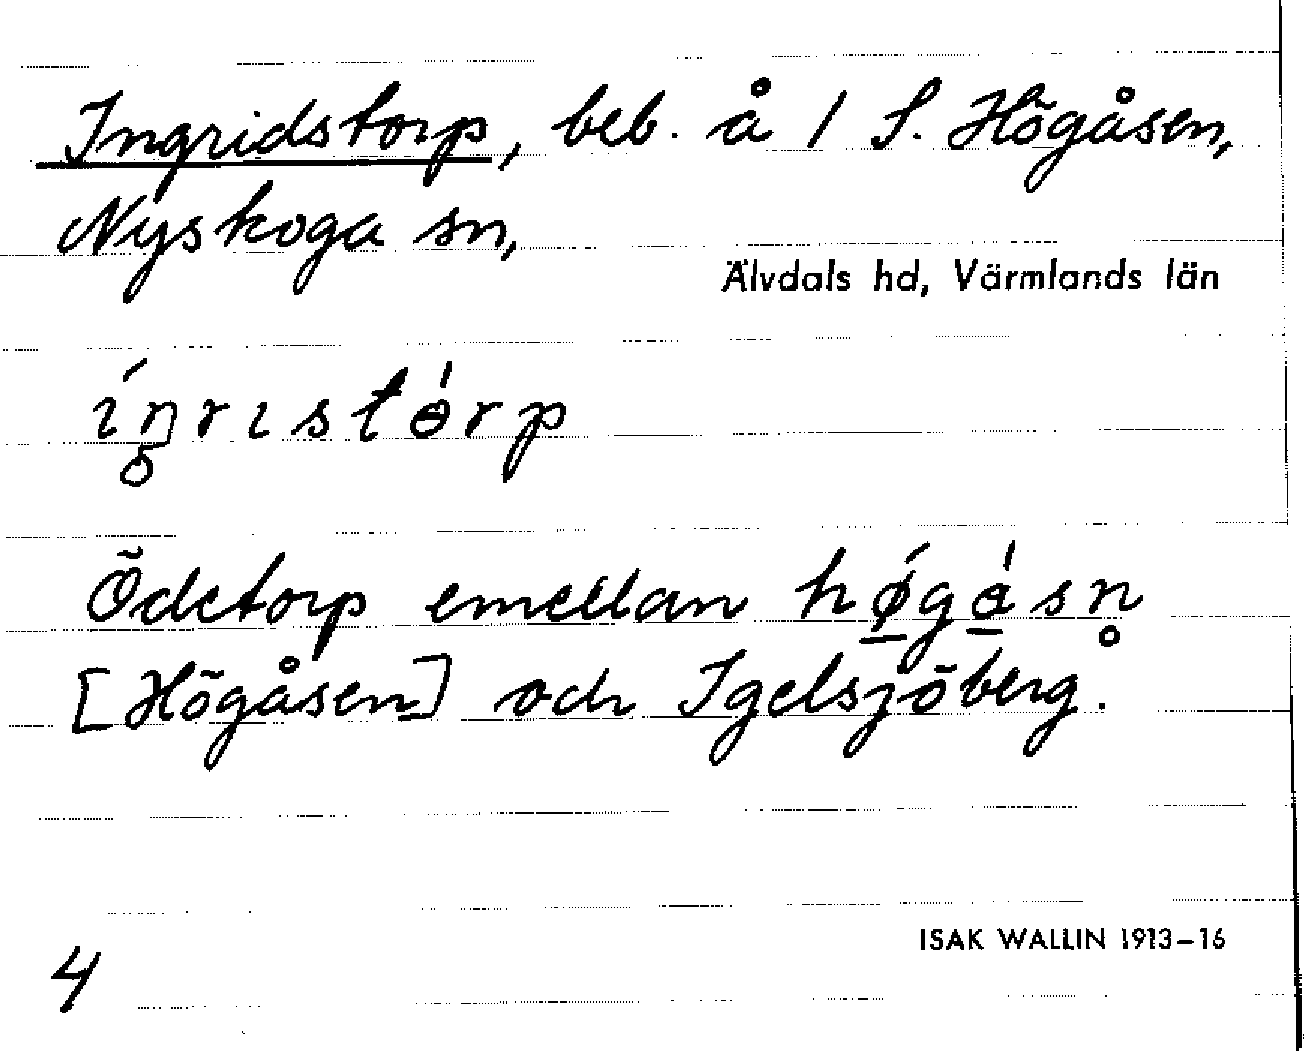 Ingridstorp, beb. å 1 S. Högåsen,
Nyskoga sn,
Älvdals hd, Värmlands län
íŋ̊rıstɵ́rp
Ödetorp emellan hǿ̱gá̱sn̥
[Högåsen] och Igelsjöberg.
ISAK WALLIN 1913–16
4